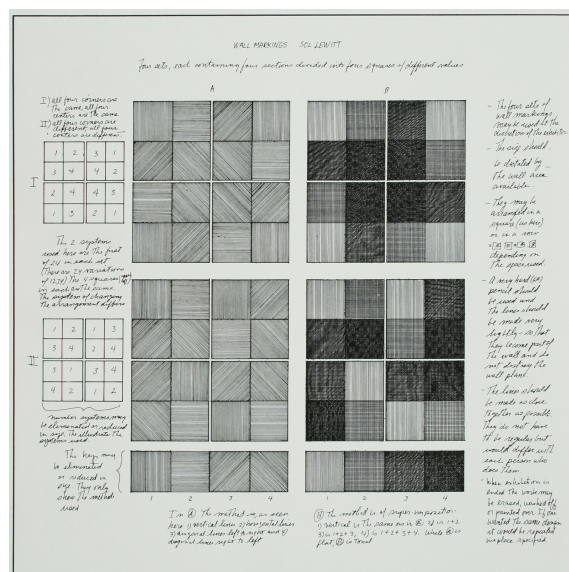 WALL MARKINGS SOL LEWITT
Four sets, each containing four sections divided into four squares of different values
A
B
I) all four corners are
the same, all four
centers are the same
II) all four corners are
different, all four
centers are different
I
1 2 3 1
3 4 4 2
2 4 4 3
1 3 2 1
The 2 systems
used here are the first
of 24 in each set
(There are 24 variations
of 1234) The 4 squares
in each are the same
The system of changing
the arrangement differs
II
1 2 1 3
3 4 2 4
3 1 3 4
4 2 1 2
number systems may
be eliminated or reduced
in size. The illustrate the
systems used
The key may
be eliminated
or reduced in
size They only
show the method
used
1 2 3 4
1 2 3 4
In Ⓐ The method is, as seen
here 1) vertical lines 2) horizontal lines
3) diagonal lines left to right and 4)
diagonal lines right to left
Ⓑ The method is of superimposition
1) vertical is the same as in Ⓐ 2) is 1+2
3) is 1+2+3, 4) is 1+2+3+4. While Ⓐ is
flat, Ⓑ is tonal
- The four sets of
wall markings
may be used at the
discretion of the exhibitor
- The size should
be dictated by
the wall area
available
- They may be
arranged in a
square (as here)
or in a row
depending on
the space used
- A very hard
pencil should
be used and
the lines should
be made very
lightly - so that
they become part of
the wall and do
not destroy the
wall plane.
- The lines should
be made as close
together as possible
They do not have
to be regular but
would differ with
each person who
does them
- When exhibition is
ended the work may
be erased, washed off
or painted over. If one
wanted the same design
it would be repeated
in place specified